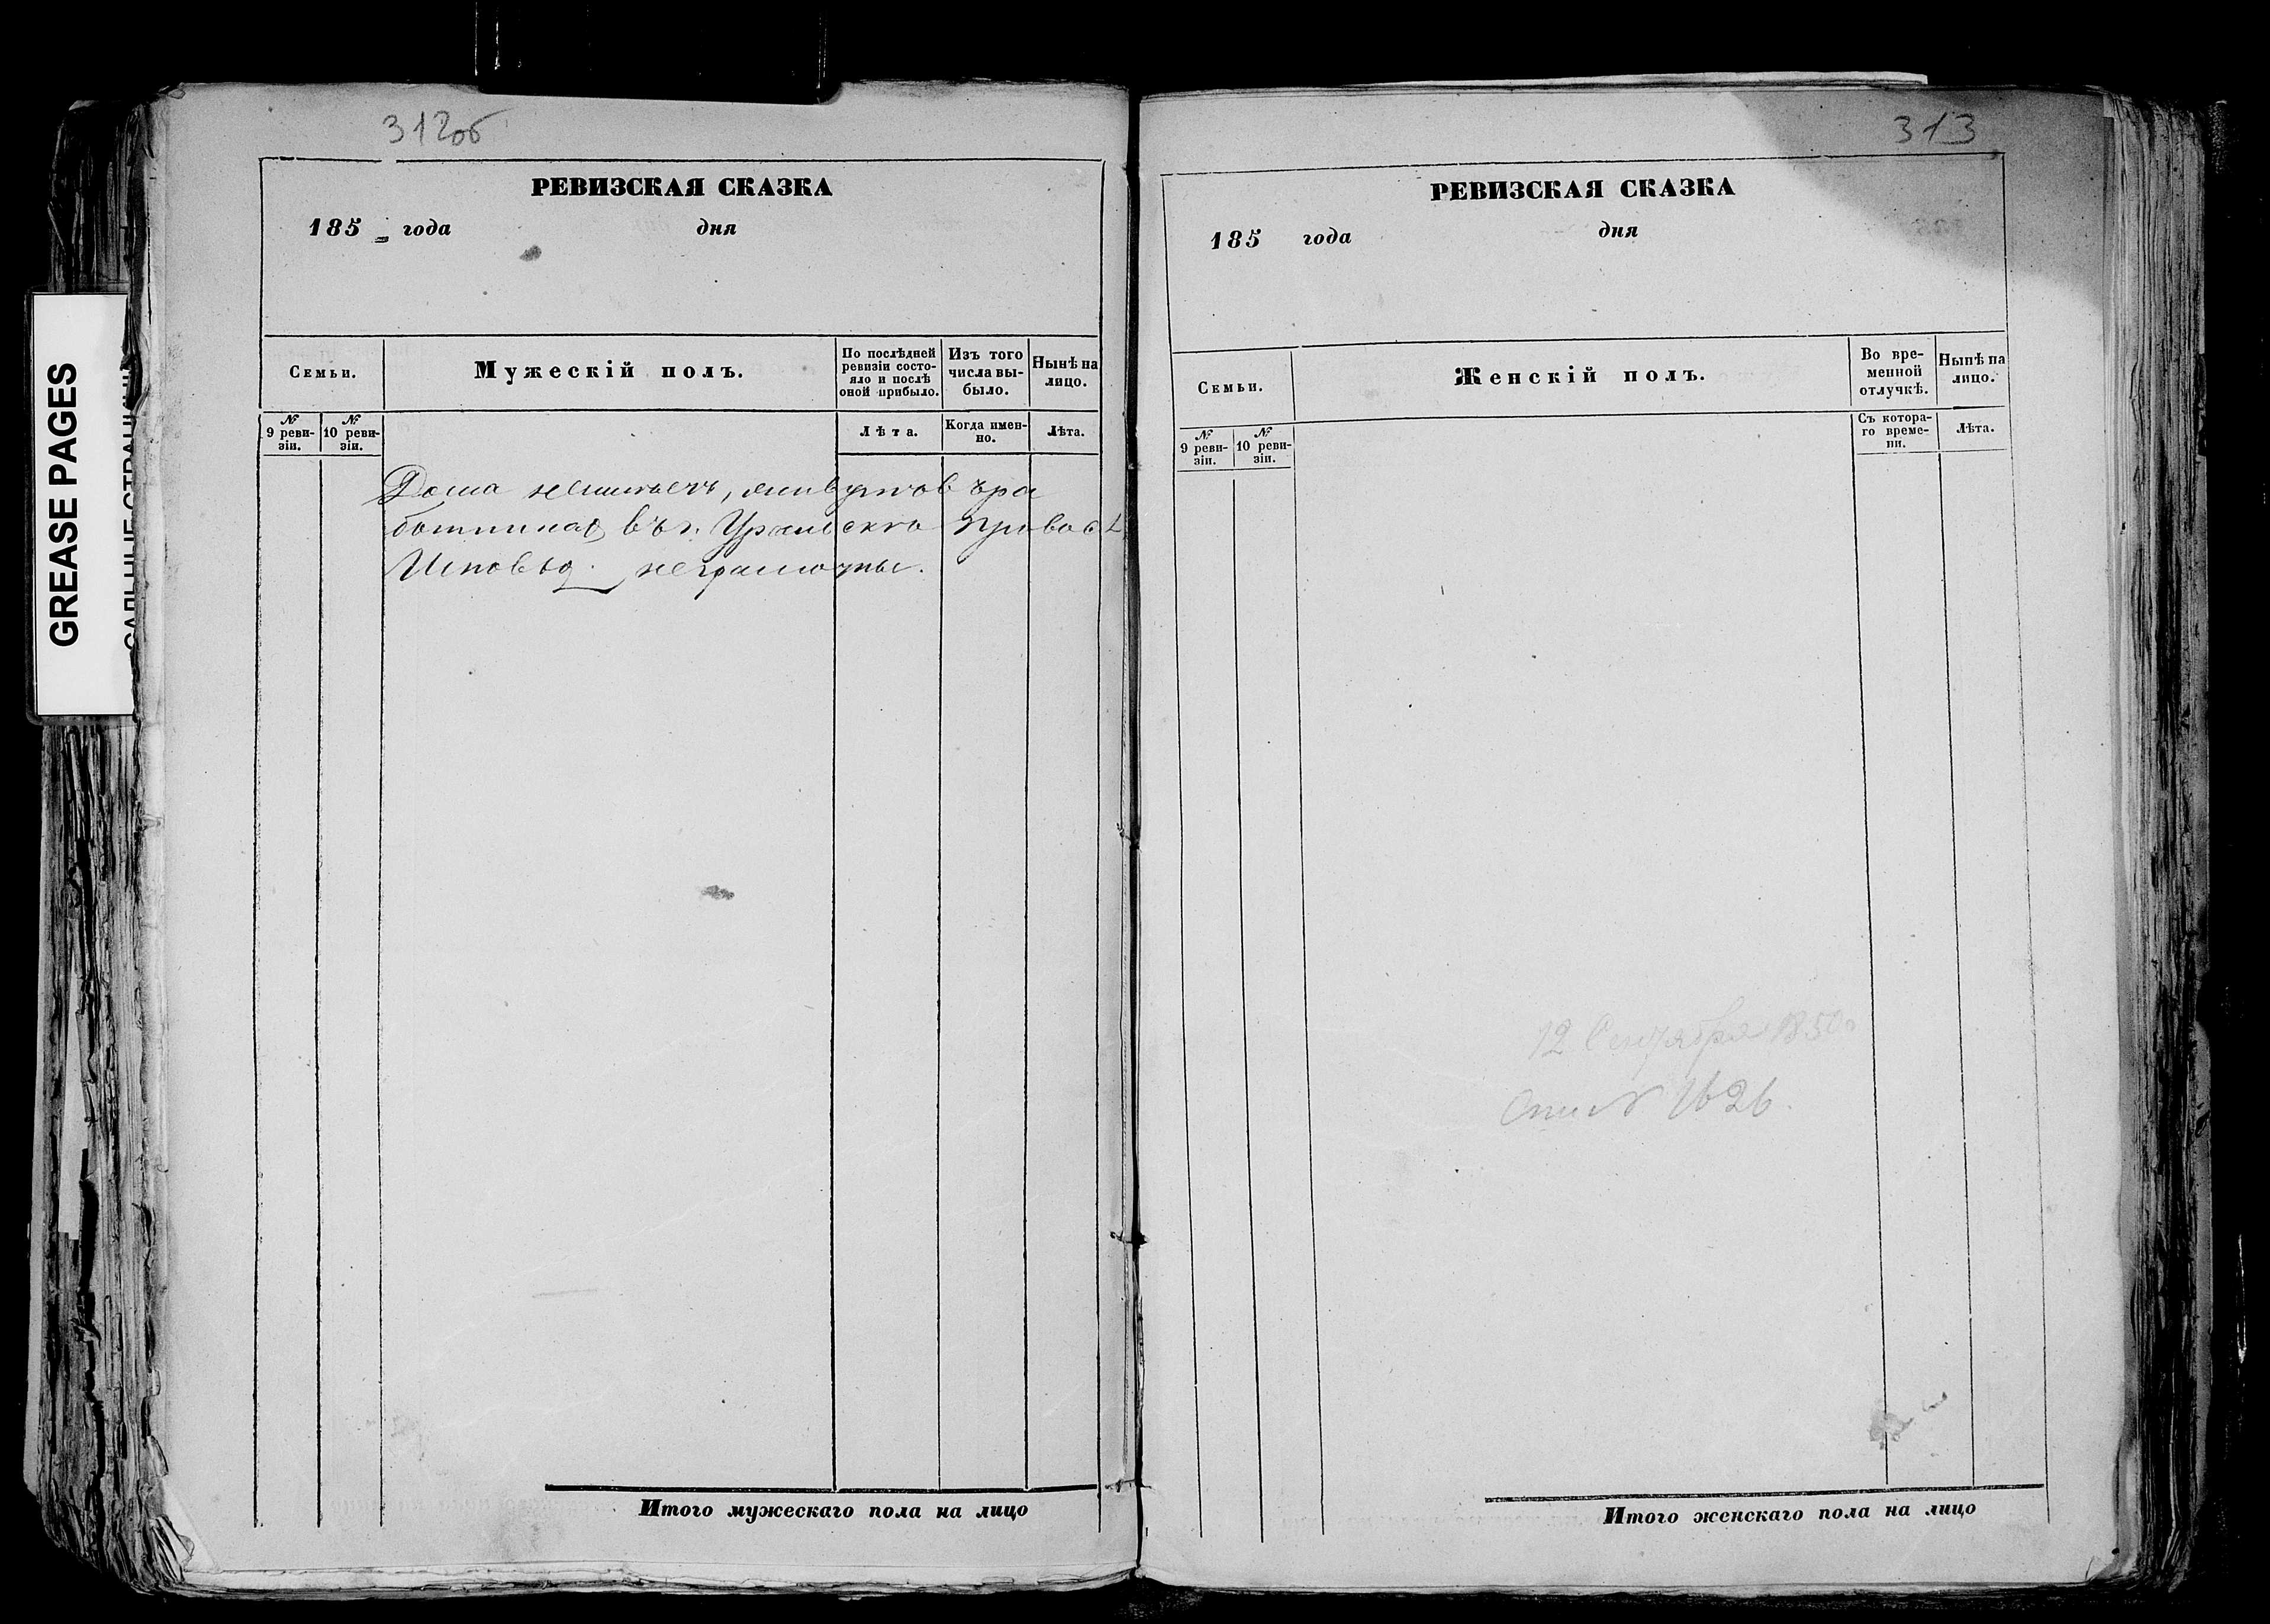 312об
РЕВИЗСКАЯ СКАЗКА
185 года дня
Семьи.
Мужескій полъ.
По послѣдней ревизіи состо-
яло и послѣ
оной прибыло.
Изъ того
числа вы-
было.
Нынѣ на
лицо.
№
9 реви-
зіи.
№
10 реви-
зіи.
Лѣта.
Когда имен-
но.
Лѣта.
Дома неимѣетъ, живутъ въ ра
ботникахъ въ г. Уральске
неграмотны.
Итого мужескаго пола на лицо
313
РЕВИЗСКАЯ СКАЗКА
185 года дня
Семьи.
Женскій полъ.
Во вре-
менной
отлучкѣ.
Нынѣ на
лицо.
№
9 реви-
зіи.
№
10 реви-
зіи.
Съ котора-
го време-
ни.
Лѣта.
12 Сентября 1850
№ 1626.
Итого женскаго пола на лицо
GREASE PAGES